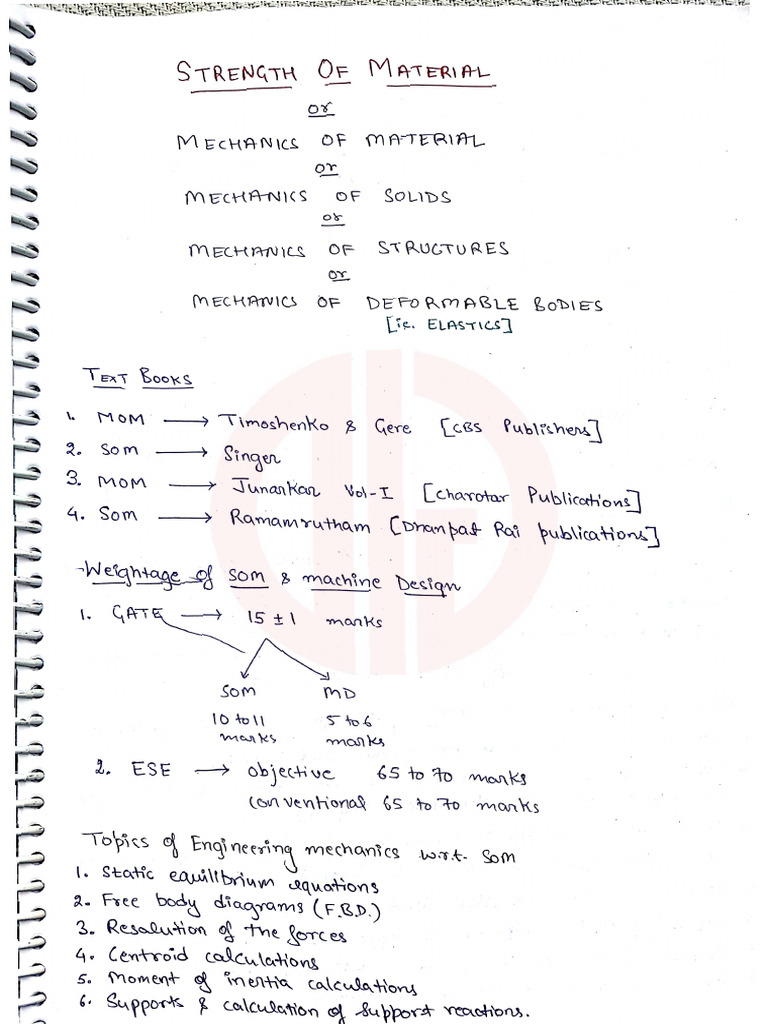 STRENGTH OF MATERIAL
or
MECHANICS OF MATERIAL
or
MECHANICS OF SOLIDS
or
MECHANICS OF STRUCTURES
or
MECHANICS OF DEFORMABLE BODIES
[ie. ELASTICS]
TEXT BOOKS
1. MOM → Timoshenko & Gere [CBS Publishers]
2. SOM → Singer
3. MOM → Junarkar Vol-I [Charotar Publications]
4. SOM → Ramamrutham [Dhanpat Rai publications]
Weightage of SOM & machine Design
1. GATE → 15 ± 1 marks
SOM MD
10 to 11 5 to 6
marks marks
2. ESE → objective 65 to 70 marks
conventional 65 to 70 marks
Topics of Engineering mechanics w.r.t. SOM
1. Static equilibrium equations
2. Free body diagrams (F.B.D.)
3. Resolution of the forces
4. Centroid calculations
5. Moment of inertia calculations
6. Supports & calculation of support reactions.